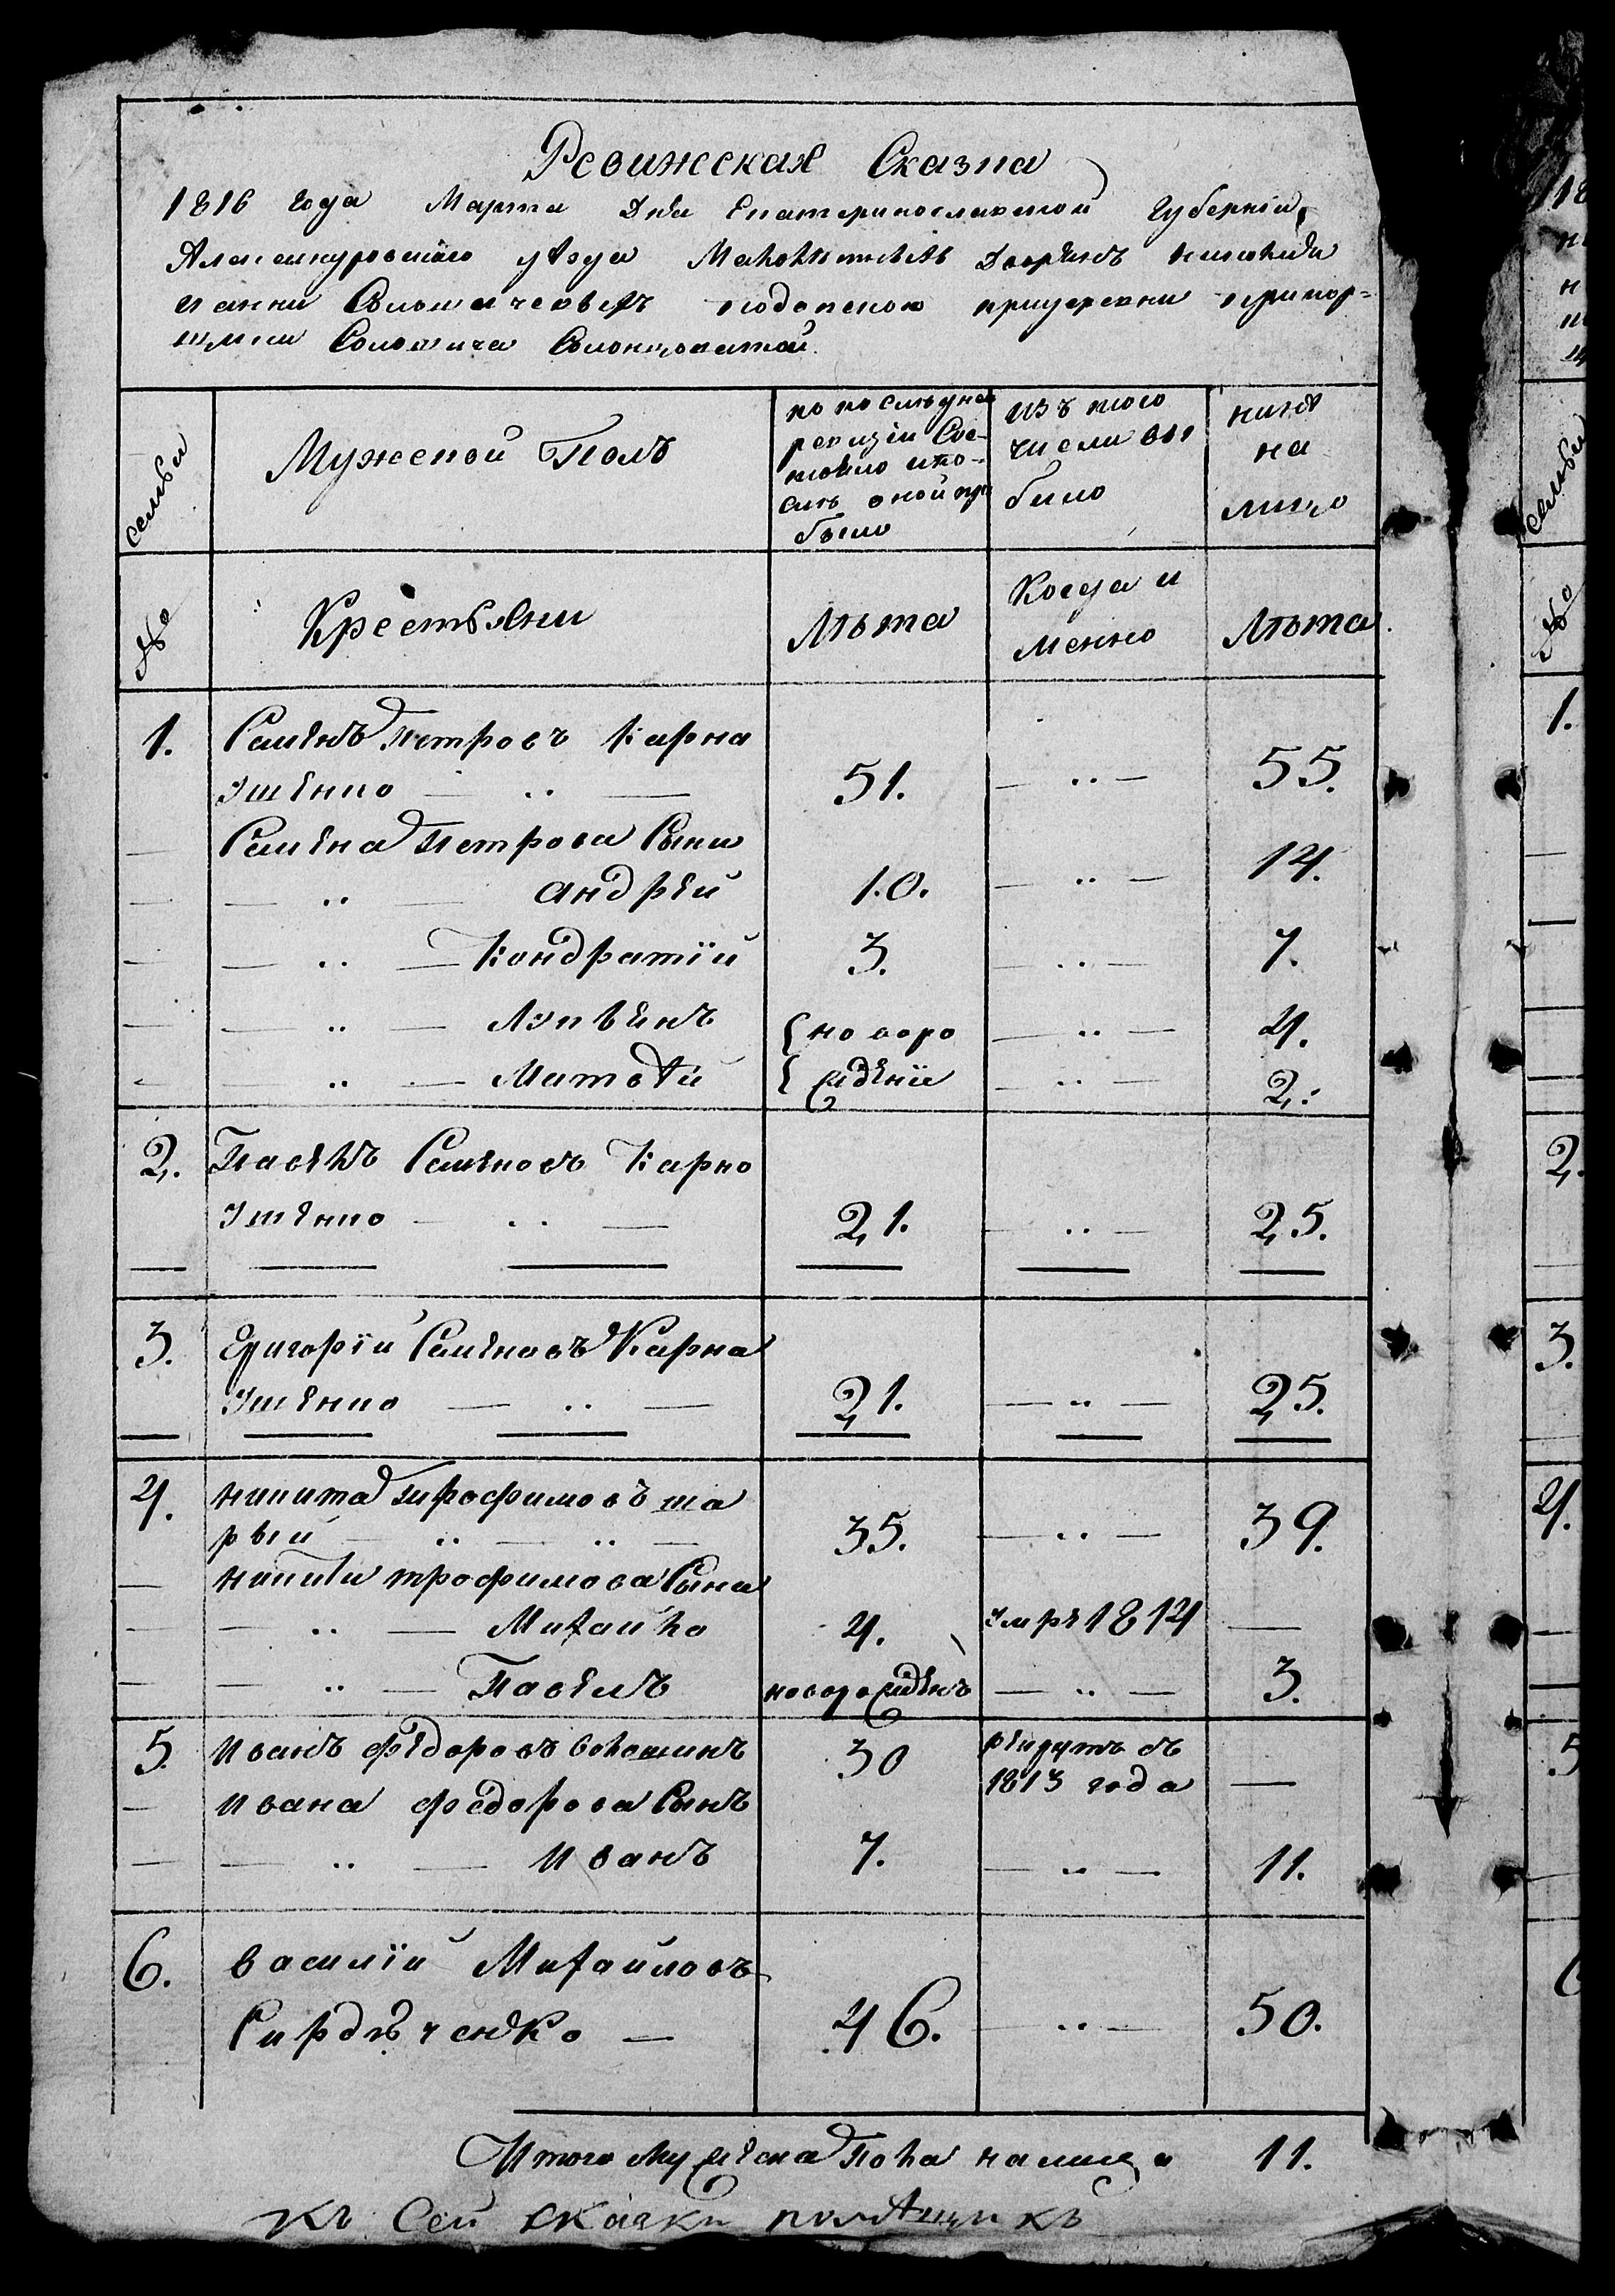 Ревижская Сказка
1816 года Марта дня Екатеринославской Губерніи,
Александровскаго уѣзда Малолѣтнѣхъ Дворянъ
подопекою придеревни
Солонича
семьи
Мужеской Полъ
по послѣдней
ревизіи Сос-
тояло ипо-
слѣ оной при
было
изъ того
числа вы
было
нинѣ
на
лицо
№
Крестьяни
Лѣта
Когда и
менно
Лѣта
1. Семенъ Петровъ Карна
ушенко — .. — 51. — .. — 55.
— Семена Петрова Сыни
— — .. — андрей 1.0. — .. — 14.
— — .. — Кондратій 3. — .. — 7.
— — .. — Лукьянъ { новоро — .. — 4.
— — .. — Матвѣй { жденіе — .. — 2.
2. Павелъ Семеновъ Карно
ушенко — .. — 21. — .. — 25.
3. Григорій Семеновъ Карна
ушенко — .. — 21. — .. — 25.
4. никита Трофимовъ ша
рый — .. — .. — 35. — .. — 39.
— никиты трофимова Сыны
— — .. — Михайло 4. умре 1814 —
— — .. — Павелъ новорожденъ — .. — 3.
5. иванъ федоровъ волошинъ 30 рекрутъ съ
1813 года —
— ивана федорова Сынъ
— — .. — иванъ 7. — .. — 11.
6. василій Михайловъ
Сирдѣченко — 46. — .. — 50.
Итого Мужеска Пола налицо 11.
къ Сей скаски
18
семьи
№
1.
2.
3.
4.
5